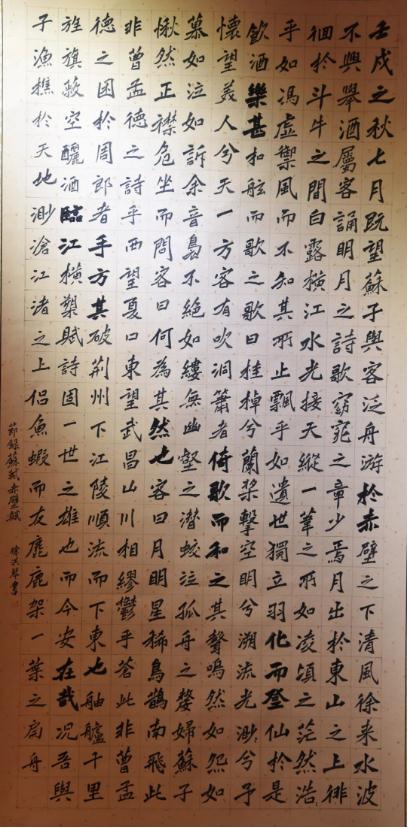 壬戌之秋七月既望蘇子與客泛舟游於赤壁之下清風徐来水波
不興舉酒屬客誦明月之詩歌窈窕之章少焉月出於東山之上徘
徊於斗牛之間白露横江水光接天縱一葦之所如凌頃之茫然浩
乎如馮虛禦風而不知其所止飄乎如遺世獨立羽化而登仙於是
飲酒樂甚扣舷而歌之歌曰桂棹兮蘭槳擊空明兮溯流光渺兮予
懷望美人兮天一方客有吹洞簫者倚歌而和之其聲鳴然如怨如
慕如泣如訴余音裊不絕如縷無幽壑之潜蛟泣孤舟之嫠婦蘇子
愀然正襟危坐而問客曰何為其然也客曰月明星稀烏鵲南飛此
非曾孟德之詩乎西望夏口東望武昌山川相繆鬱乎苍此非曾孟
德之困於周郎者乎方其破荆州下江陵順流而下東也舳艫千里
旌旗蔽空釃酒臨江横槊賦詩固一世之雄也而今安在哉况吾與
子漁樵於天地渺滄江渚之上侣魚蝦而友麋鹿架一葉之扁舟
節録蘇軾赤壁賦